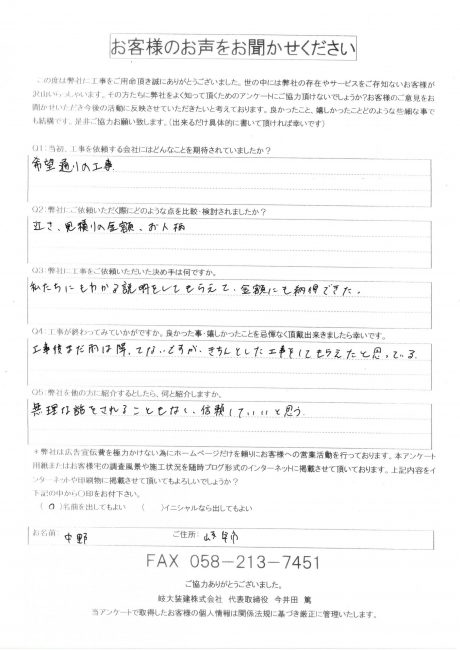 お客様のお声をお聞かせください
この度は弊社に工事をご用命頂き誠にありがとうございました。世の中には弊社の存在やサービスをご存知ないお客様が
沢山いらっしゃいます。その方たちに弊社をよく知って頂くためのアンケートにご協力頂けないでしょうか?お客様のご意見をお
聞かせいただき今後の活動に反映させていただきたいと考えております。良かったこと、嬉しかったことどのような些細な事で
も結構です、是非ご協力お願い致します。(出来るだけ具体的に書いて頂ければ幸いです)
Q1:当初、工事を依頼する会社にはどんなことを期待されていましたか?
希望通りの工事
Q2:弊社にご依頼いただく際にどのような点を比較・検討されましたか?
近さ、見積りの金額、お人柄
Q3:弊社に工事をご依頼いただいた決め手は何ですか。
私たちにもわかる説明をしてもらえて、金額にも納得できた。
Q4:工事が終わってみていかがですか。良かった事・嬉しかったことを忌憚なく頂戴出来ましたら幸いです。
工事後まだ雨は降ってないですが、きちんとした工事をしてもらえたと思っている。
Q5:弊社を他の方に紹介するとしたら、何と紹介しますか。
無理な話をされることもなく、信頼していいと思う
*弊社は広告宣伝費を極力かけない為にホームページだけを頼りにお客様への営業活動を行っております。本アンケート
用紙またはお客様宅の調査風景や施工状況を随時ブログ形式のインターネットに掲載させて頂いております。上記内容をイ
ンターネットや印刷物に掲載させて頂いてもよろしいでしょうか?
下記の中から○印をお付下さい。
(○)名前を出してもよい ( )イニシャルなら出してもよい
お名前: 中野 ご住所: 岐阜市
FAX 058-213-7451
ご協力ありがとうございました。
岐大装建株式会社 代表取締役 今井田 篤
当アンケートで取得したお客様の個人情報は関係法規に基づき厳正に管理いたします。